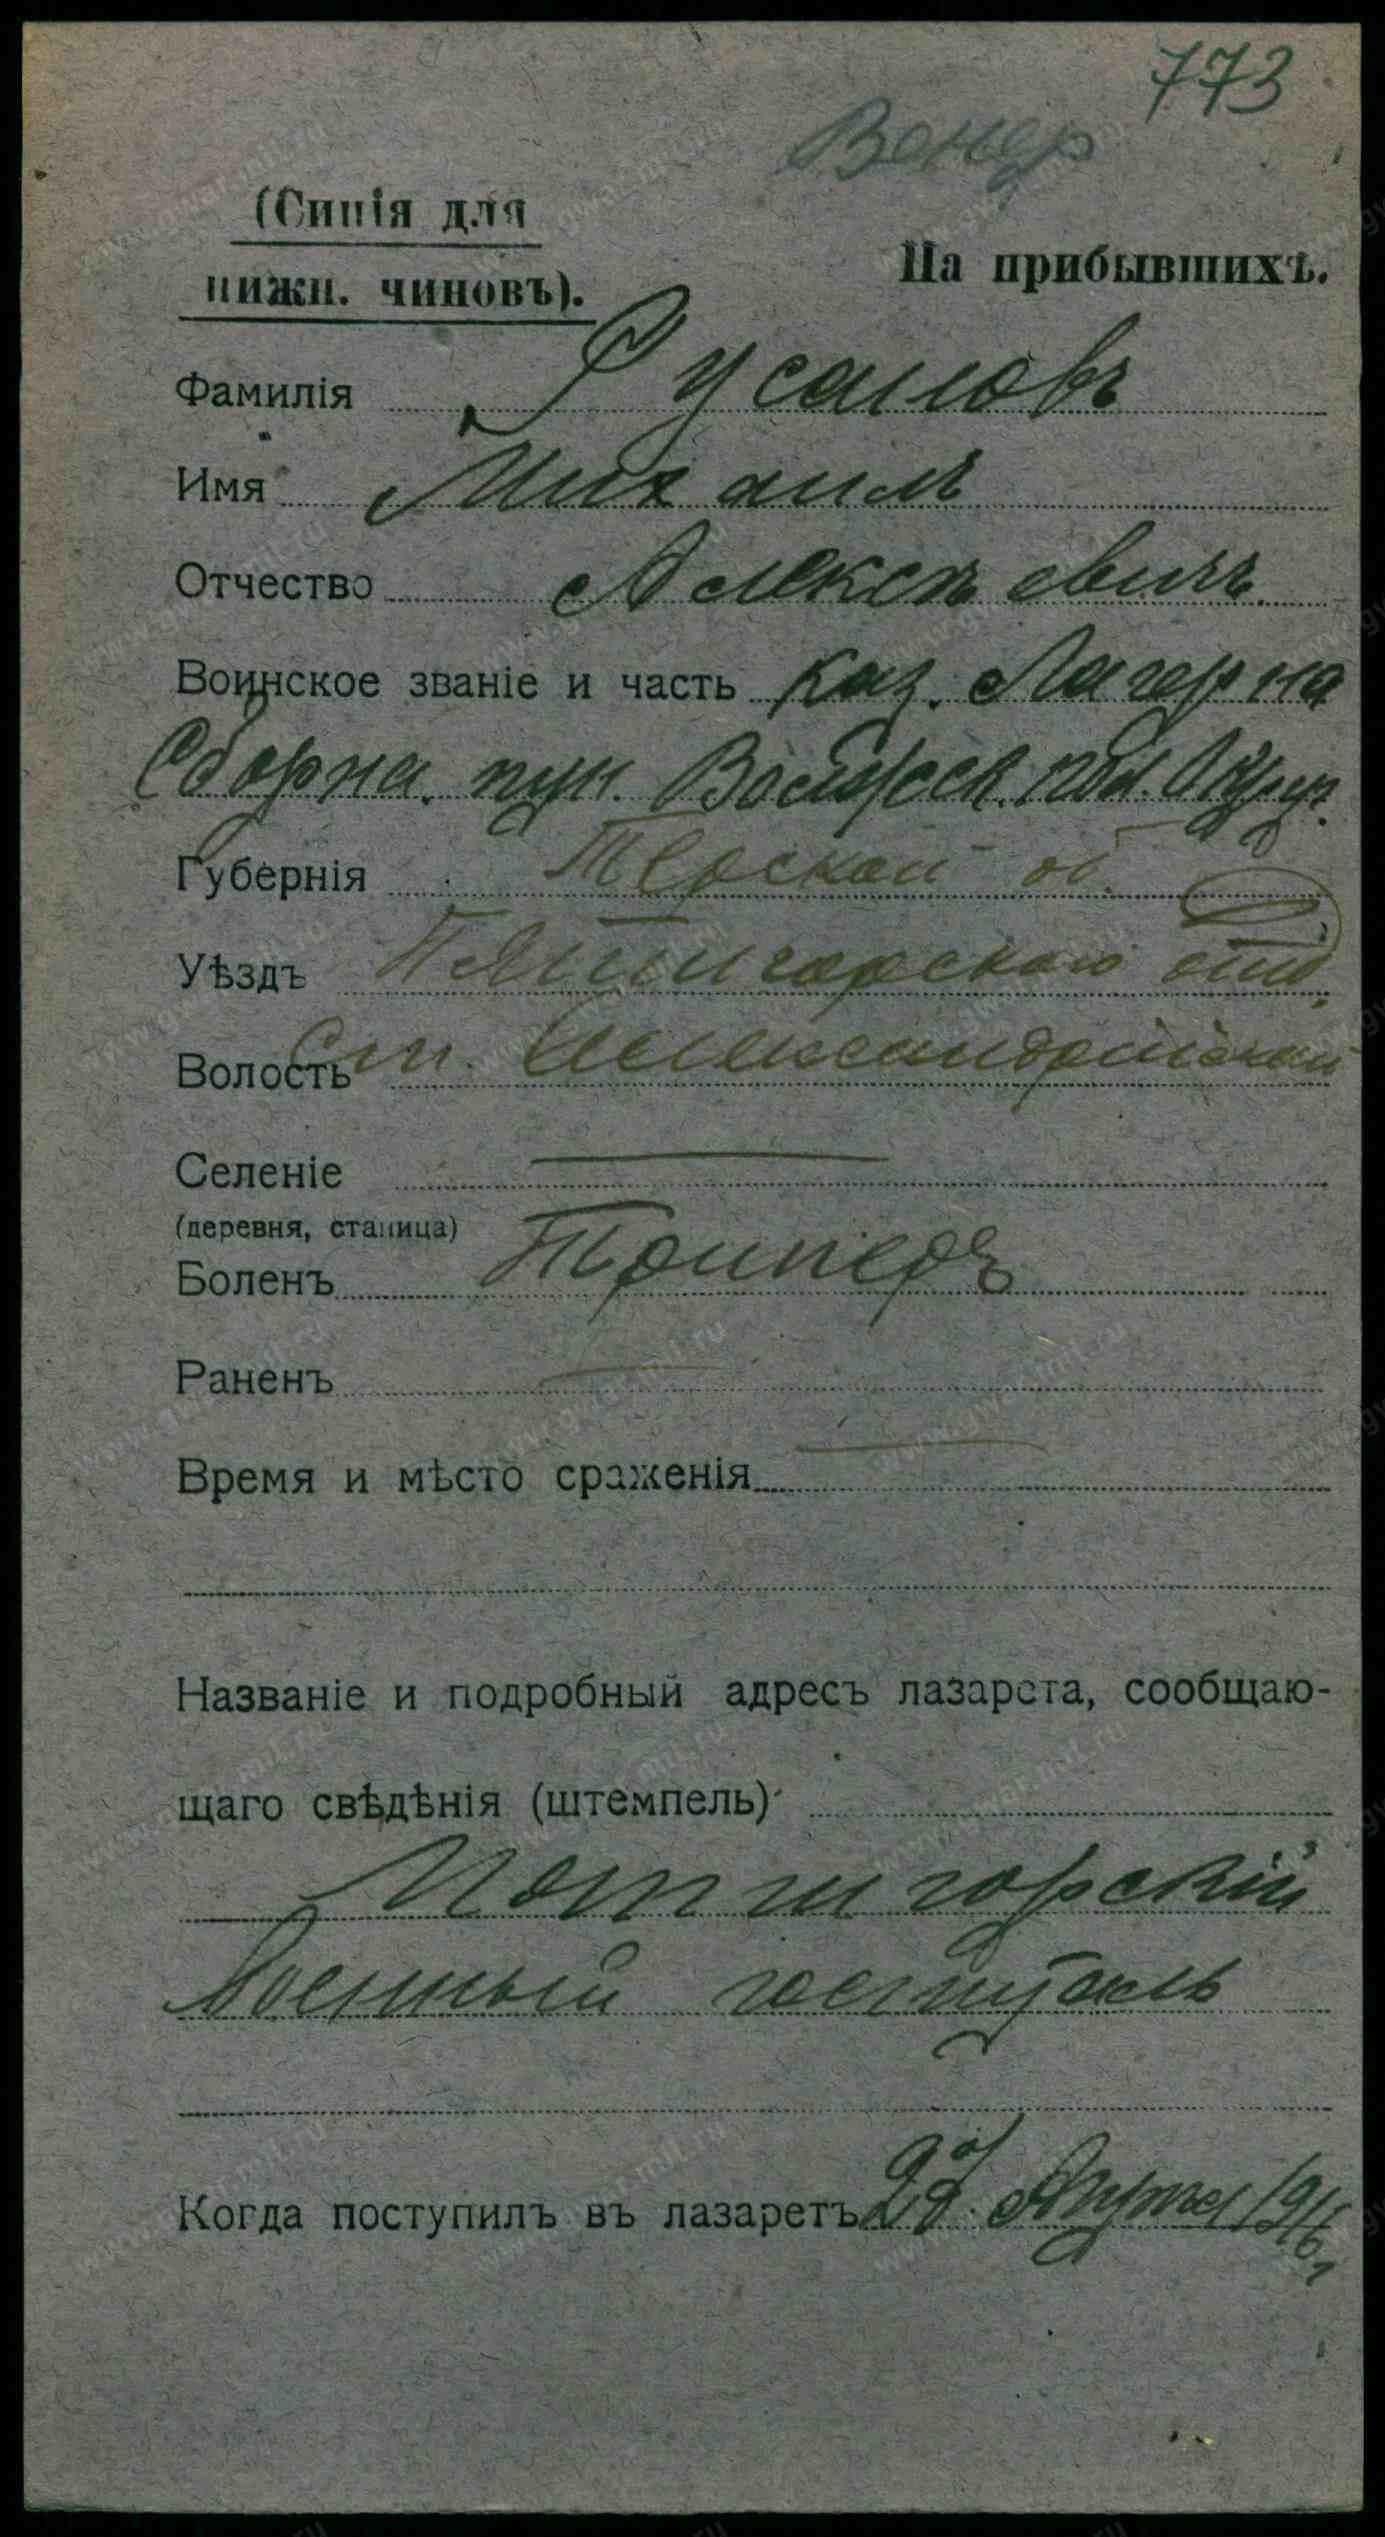 773
Венер
(Синія для
нижн. чиновъ).
На прибывшихъ.
Фамилія Русаловъ
Имя Михаилъ
Отчество Алексѣевичъ
Воинское званіе и часть каз. Лагерна
Сборна. пун.
Губернія Терской об.
Уѣздъ Пятигорскаго отд.
Волость Ст. Александрійской
Селеніе
(деревня, станица)
Боленъ Трипперъ
Раненъ
Время и мѣсто сраженія
Названіе и подробный адресъ лазарета, сообщаю-
щаго свѣдѣнія (штемпель)
Пятигорскій
Военный госпиталь
Когда поступилъ въ лазаретъ Апрѣля 1916